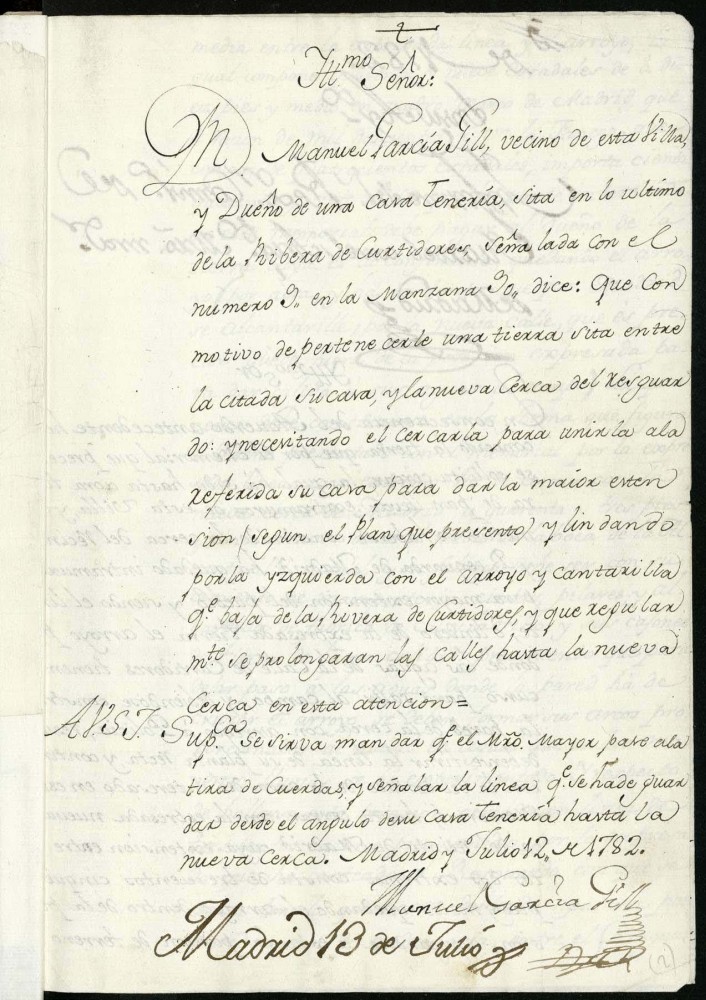 Yltmo Señor:
Manuel García Gill, vecino de esta Villa,
y Dueño de una Casa Tenería, sita en lo ultimo
de la Ribera de Curtidores, señalada con el
numero 9., en la Manzana 90,, dice: Que con
motivo de pertenecerle una tierra sita entre
la citada su casa, y la nueva Cerca del Resguar
do: y necesitando el cercarla para unirla a la
referida su casa para dar la maior esten
sion (segun el Plan que presento) y lindando
por la yzquierda con el Arroyo y cantarilla
q.e baja de la Rivera de Curtidores, y que regular
mte se prolongaran las calles hasta la nueva
Cerca en esta atencion=
A V.S.I. Sup.ca se sirva mandar q.e el Mro. Mayor pase a la
tira de Cuerdas, y señalar la linea q.e se ha de guar
dar desde el angulo de su Casa Tenería hasta la
nueva cerca. Madrid y Julio 12,, de 1782.
Manuel García Gill
Madrid 13 de Julio
(2)